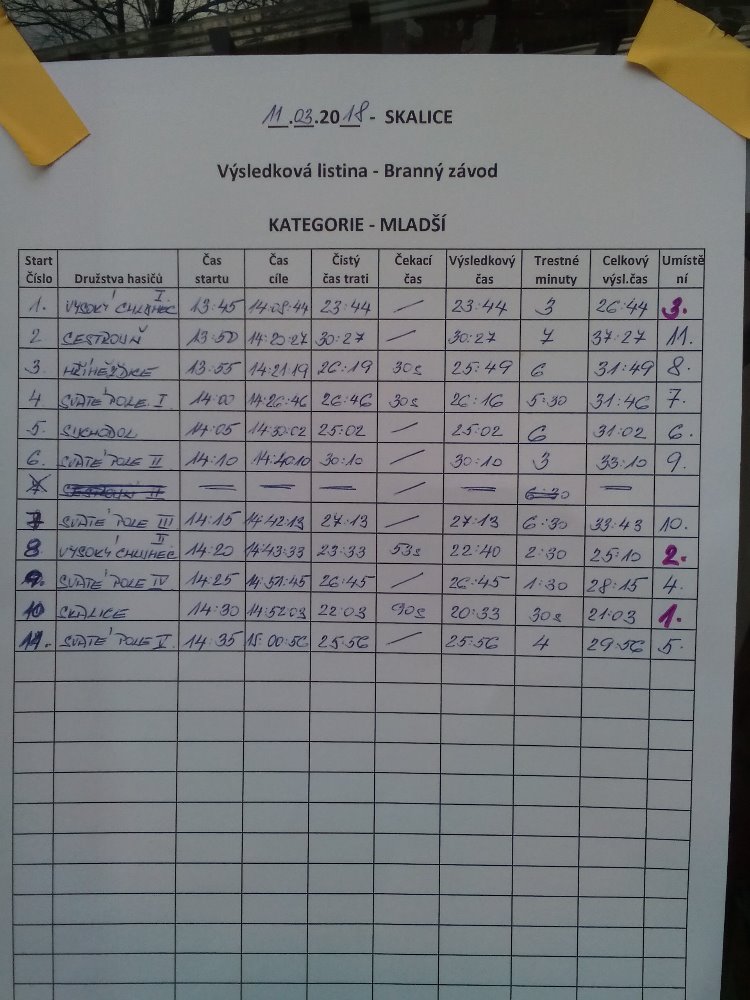 11.03.2018 - SKALICE
Výsledková listina - Branný závod
KATEGORIE - MLADŠÍ
Start Číslo Družstva hasičů Čas startu Čas cíle Čistý čas trati Čekací čas Výsledkový čas Trestné minuty Celkový výsl.čas Umístě ní
1. VYSOKÝ CHLUMEC I. 13:45 14:08:44 23:44 / 23:44 3 26:44 3.
2 CESTROUŇ 13:50 14:20:27 30:27 / 30:27 7 37:27 11.
3. HŘÍMĚŽDICE 13:55 14:21:19 26:19 30s 25:49 6 31:49 8.
4. SVATÉ POLE I 14:00 14:26:46 26:46 30s 26:16 5:30 31:46 7.
5. SUCHODOL 14:05 14:30:02 25:02 / 25:02 6 31:02 6.
6. SVATÉ POLE II 14:10 14:40:10 30:10 / 30:10 3 33:10 9.
— — — / — 6:30 —
7. SVATÉ POLE III 14:15 14:42:13 27:13 / 27:13 6:30 33:43 10.
8. VYSOKÝ CHLUMEC II 14:20 14:43:33 23:33 53s 22:40 2:30 25:10 2.
9. SVATÉ POLE IV 14:25 14:51:45 26:45 / 26:45 1:30 28:15 4.
10 SKALICE 14:30 14:52:03 22:03 90s 20:33 30s 21:03 1.
11. SVATÉ POLE V 14:35 15:00:56 25:56 / 25:56 4 29:56 5.